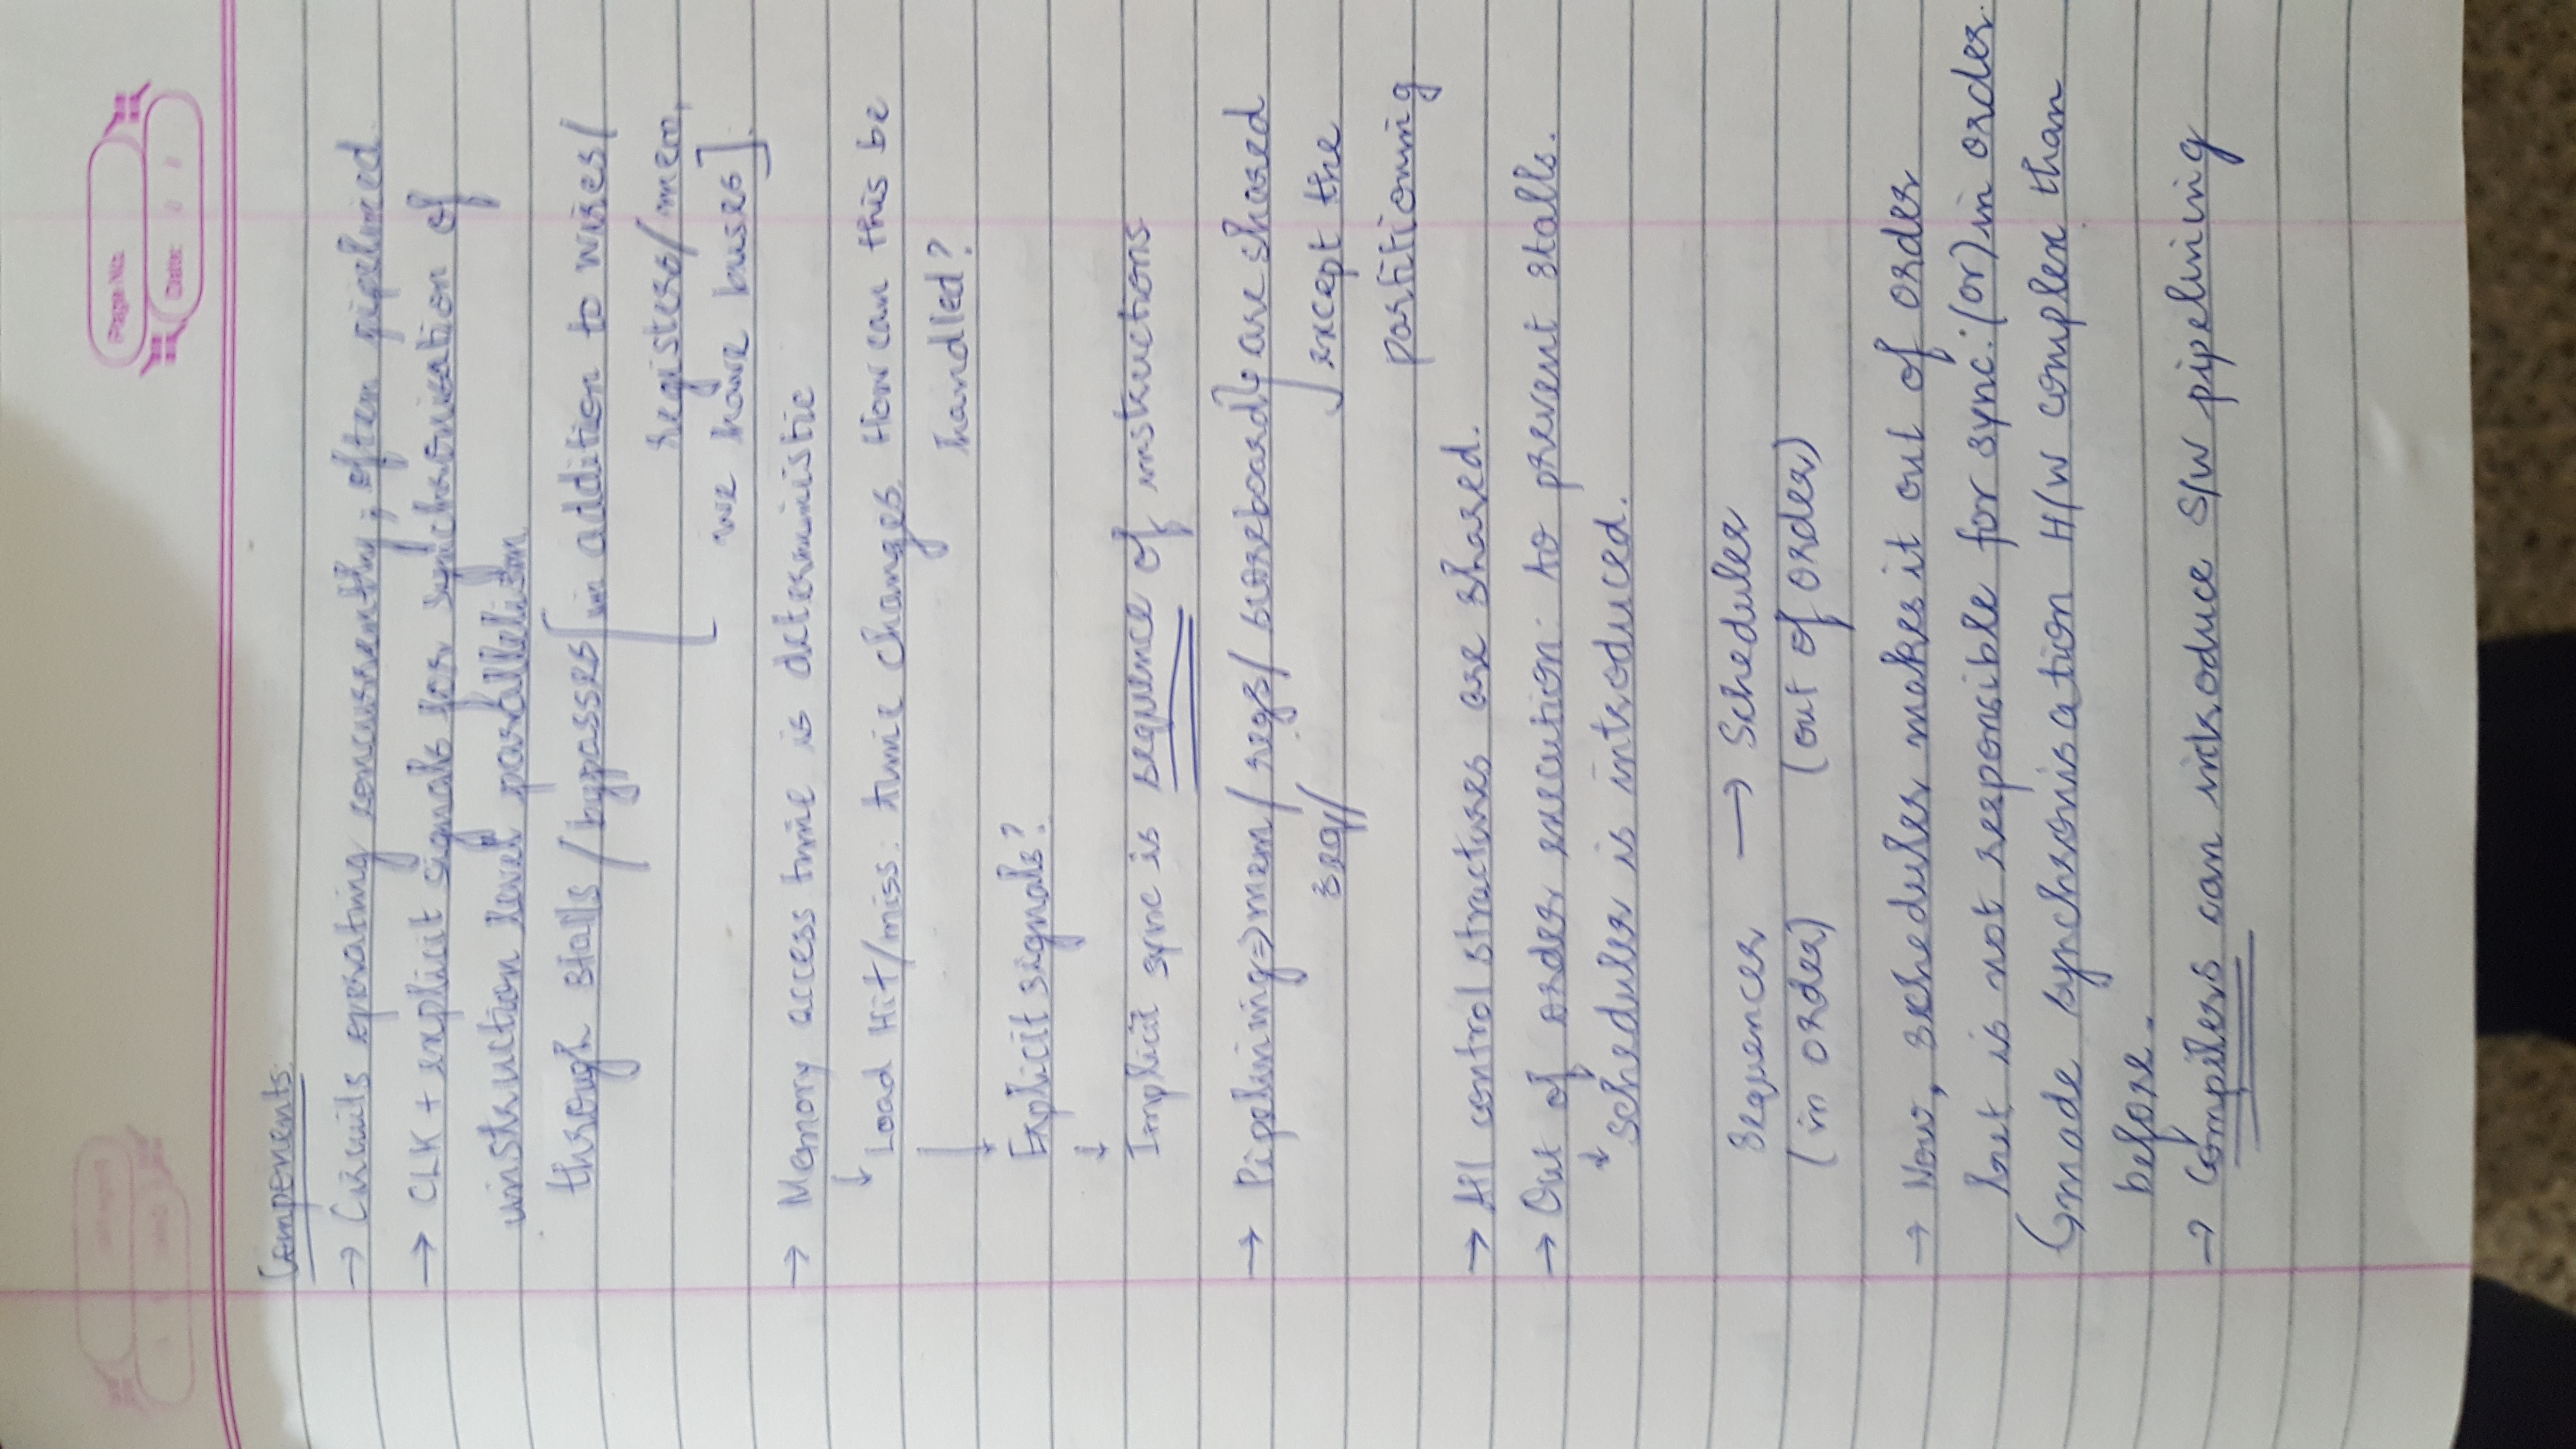 Page No.
Date: / /
Components
→ Circuits operating concurrently; often pipelined.
→ CLK + explicit signals for synchronisation of
instruction level parallelism
through stalls / bypasses [in addition to wires/
registers/mem,
we have buses].
→ Memory access time is deterministic
↓ Load Hit/miss: time changes. How can this be
handled?
↓
Explicit signals?
↓
Implicit sync is sequence of instructions
→ Pipelining ⇒ mem/ regs/ scoreboard} are shared
seq// except the
partitioning
→ All control structures are shared.
→ Out of order execution: to prevent stalls.
↓ scheduler is introduced.
Sequencer → Scheduler
(in order) (out of order)
→ Now, scheduler makes it out of order
but is not responsible for sync. (or) in order.
↳ made synchronisation H/W complex than
before.
→ Compilers can introduce S/W pipelining